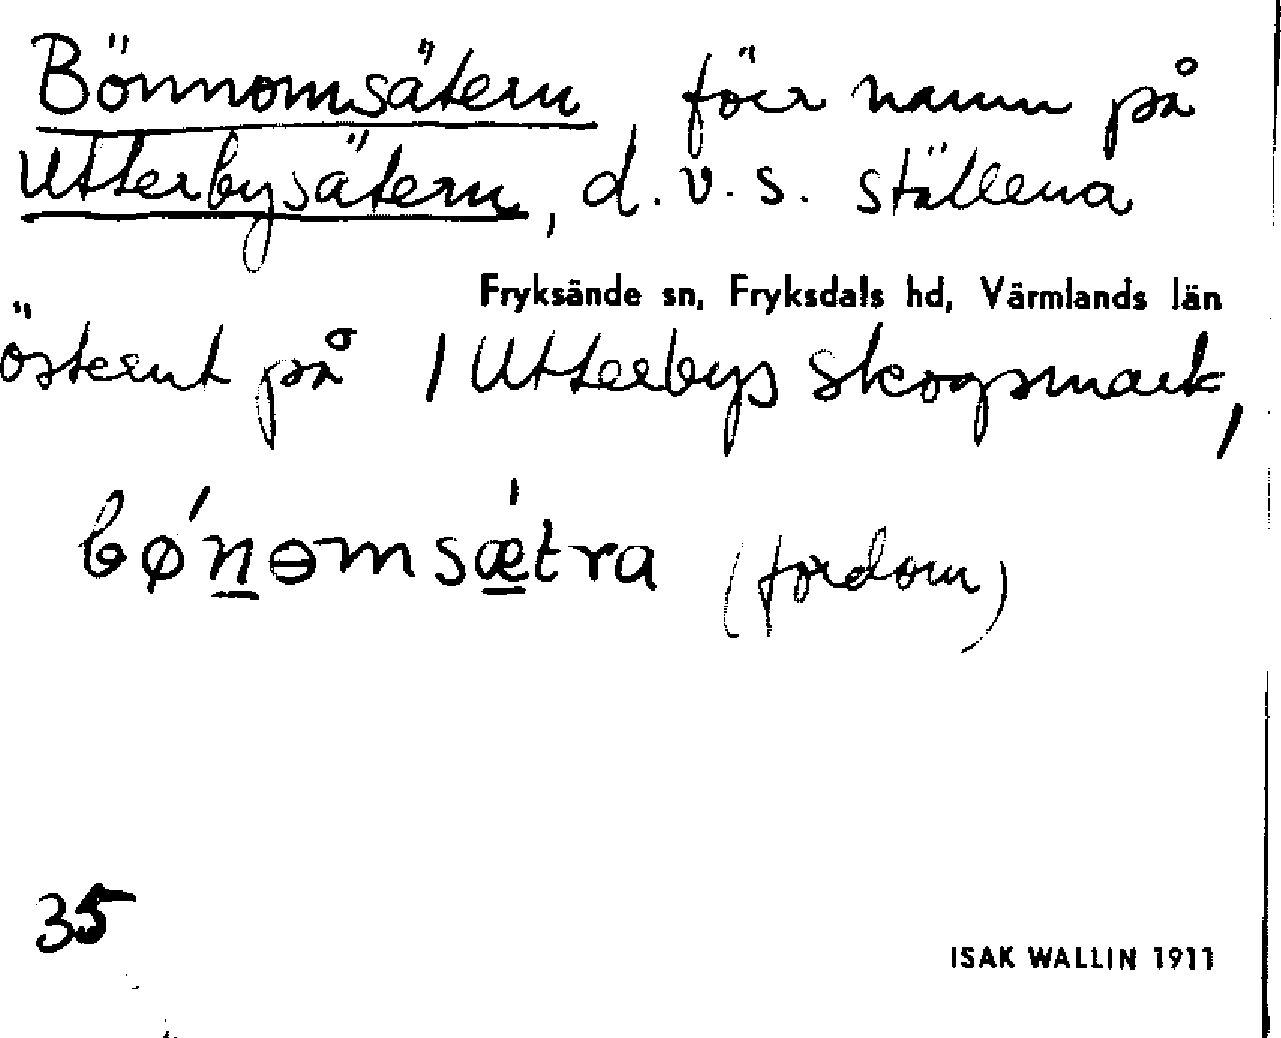 Bönnomsätern, förr namn på
Utterbysätern, d.v.s. ställena
Fryksände sn, Fryksdals hd, Värmlands län
österut på / Utterbys skogsmark,
bǿn̲ɘmsǽ̲tra (fordom)
35
ISAK WALLIN 1911